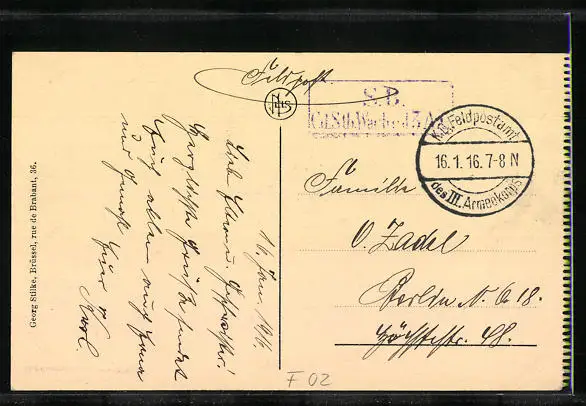 Feldpost
S.B.
K.D. Feldpostamt
16.1.16. 7-8 N
des III. Armeekorps
16. Jan. 1916.
Lieb Eltern u. Geschwister!
Herzlichste Grüße sendet
Euch allen aus Fern
und Euer
Karl.
Familie
O. Zadel
Berlin N. O 18.
Höchstestr. 48.
Georg Stilke, Brüssel, rue de Brabant, 36.
F 02